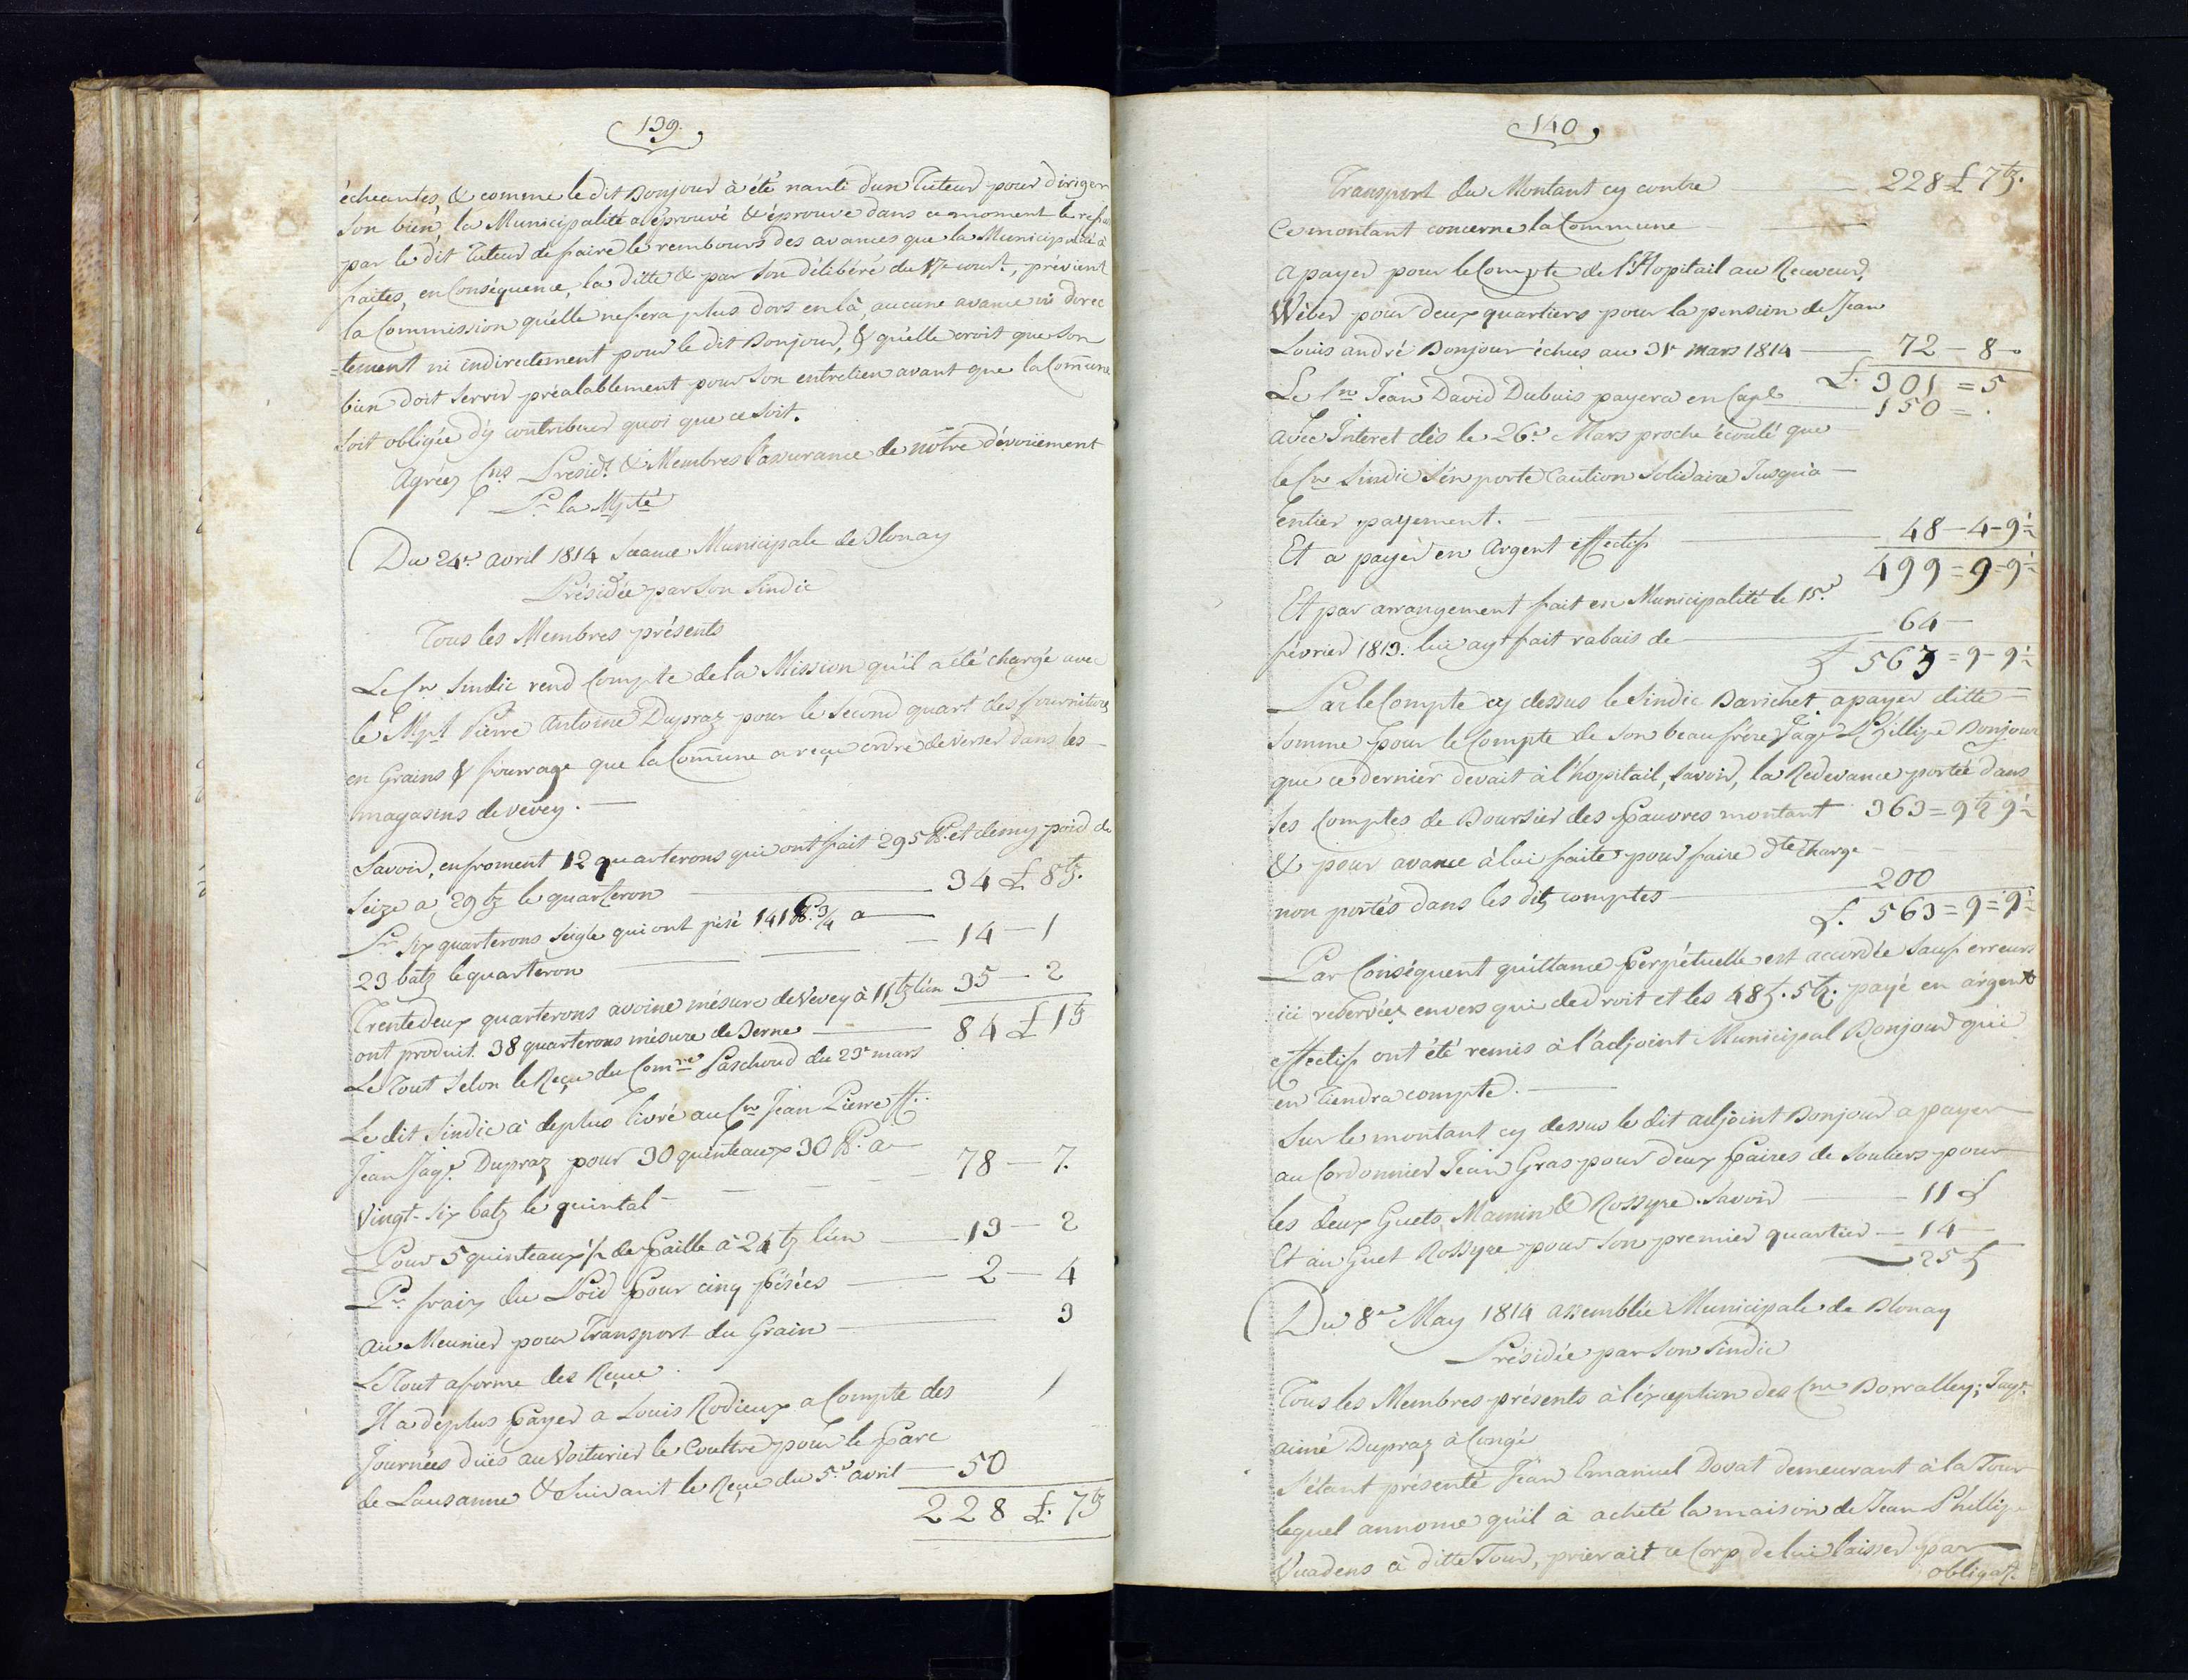 139.
échéantes, & comme le dit Bonjour à été nanti d'un Tuteur pour diriger
son bien, la Municipalité a éprouvé & éprouve dans ce moment le refus
par le dit Tuteur de faire le rembours des avances que la Municipalité à
faites, en Conséquence, la ditte & par son délibéré du 17e court, prévient
la Commission qu'elle ne fera plus dors en là, aucune avance ni direc
=tement ni indirectement pour le dit Bonjour, & qu'elle croit que son
bien doit servir préalablement pour son entretien avant que la Comune
soit obligée d'y contribuer quoi que ce soit.
Agréez Cns Présidt & Membres l'assurance de notre dévoüement
Pr la Mpté
Du 24e avril 1814 Séance Municipale de Blonay
Présidée par son Sindic
Tous les Membres présents
Le Cn Sindic rend Compte de la Mission qu'il a été chargé avec
le Mpl Pierre Antoine Dupraz pour le second quart des fournitures
en Grains & fourrage que la Comune a reçu ordre de verser dans les
magasins de vevey.
Savoir, en froment 12 quarterons qui ont fait 295 lb. et demy poid de
Seize a 29 bz le quarteron 34 £ 8 bz.
Pr Six quarterons seigle qui ont pesé 141 lb. 3/4 a
23 batz le quarteron 14 - 1
Trente deux quarterons avoine mésure de Vevey à 11 bz l'un 35 - 2
ont produit 38 quarterons mésure de Berne 84 £ 1 bz
Le Tout selon le Reçu du Comre Paschoud du 23e mars
Le dit Sindic à de plus livré au Cn Jean Pierre ff..
Jean Jaqs. Dupraz pour 30 quinteaux 30 lb. a
Vingt-six batz le quintal 78 - 7.
Pour 5 quinteaux ½ de Paille à 24 bz l'un 13 - 2
Pr. fraix du Poid pour cinq pésées 2 - 4
au Meunier pour Transport du Grain 3
Le Tout a forme des Reçus
Il a de plus payer a Louis Rodieux a Compte des
Journées düès au Voiturier le Coultre pour le Parc
de Lausanne & Suivant le Reçu du 5.e avril 50
228 £. 7 bz
140
Transport du Montant cy contre 228 £ 7 bz.
Ce montant concerne la Commune
a payer pour le Compte de l'Hopitail au Receveur,
Wéber pour deux quartiers pour la pension de Jean
Louis andré Bonjour échus au 31e mars 1814 72 - 8
£. 301 = 5
Le Cn Jean David Dubuis payera en Capl 150 = .
avec Interet dès le 26.e Mars proche écoulé que
le Cn Sindic s'en porte Caution Solidaire Jusqu'a
Entier payement.
Et a payer en Argent effectif 48 - 4 - 9½
499 = 9 = 9½
Et par arrangement fait en Municipalité le 15.e
février 1813. lui ayt fait rabais de 64 -
£ 563 = 9 - 9½
Par le Compte cy dessus le Sindic Barichet a payer ditte
somme pour le Compte de son beau frère Jaqs Phillipe Bonjour
que ce dernier devait à l'hopitail, savoir, la Redevance portée dans
ses Comptes de Boursier des pauvres montant 363 = 9 bz 9½
& pour avance à lui faite pour faire dte Charge
non portés dans les dits comptes 200
£. 563 = 9 = 9½
Par Conséquent quittance perpétuelle est accordée sauf erreurs
ici reservées envers qui de droit et les 48 £. 5 bz. payé en argent
effectif ont été remis à l'adjoint Municipal Bonjour qui
en Tiendra compte.
Sur le montant cy dessus le dit adjoint Bonjour a payer
au Cordonnier Jean Gras pour deux paires de Souliers pour
les deux Guets Mamin & Rossyre. Savoir 11 £
Et au Guet Rossyre pour son premier quartier 14
25 £
Du 8e May 1814 assemblée Municipale de Blonay
Présidée par son Sindic
Tous les Membres présents à l'exception des Cns Borralley; Jaqs.
aimé Dupraz à Congé
S'étant présenté Jean Emanuel Dovat demeurant à la Tour
lequel annonce qu'il à acheté la maison de Jean Phillipe
Vuadens à ditte Tour, prierait ce Corp de lui laisser par
obligat.